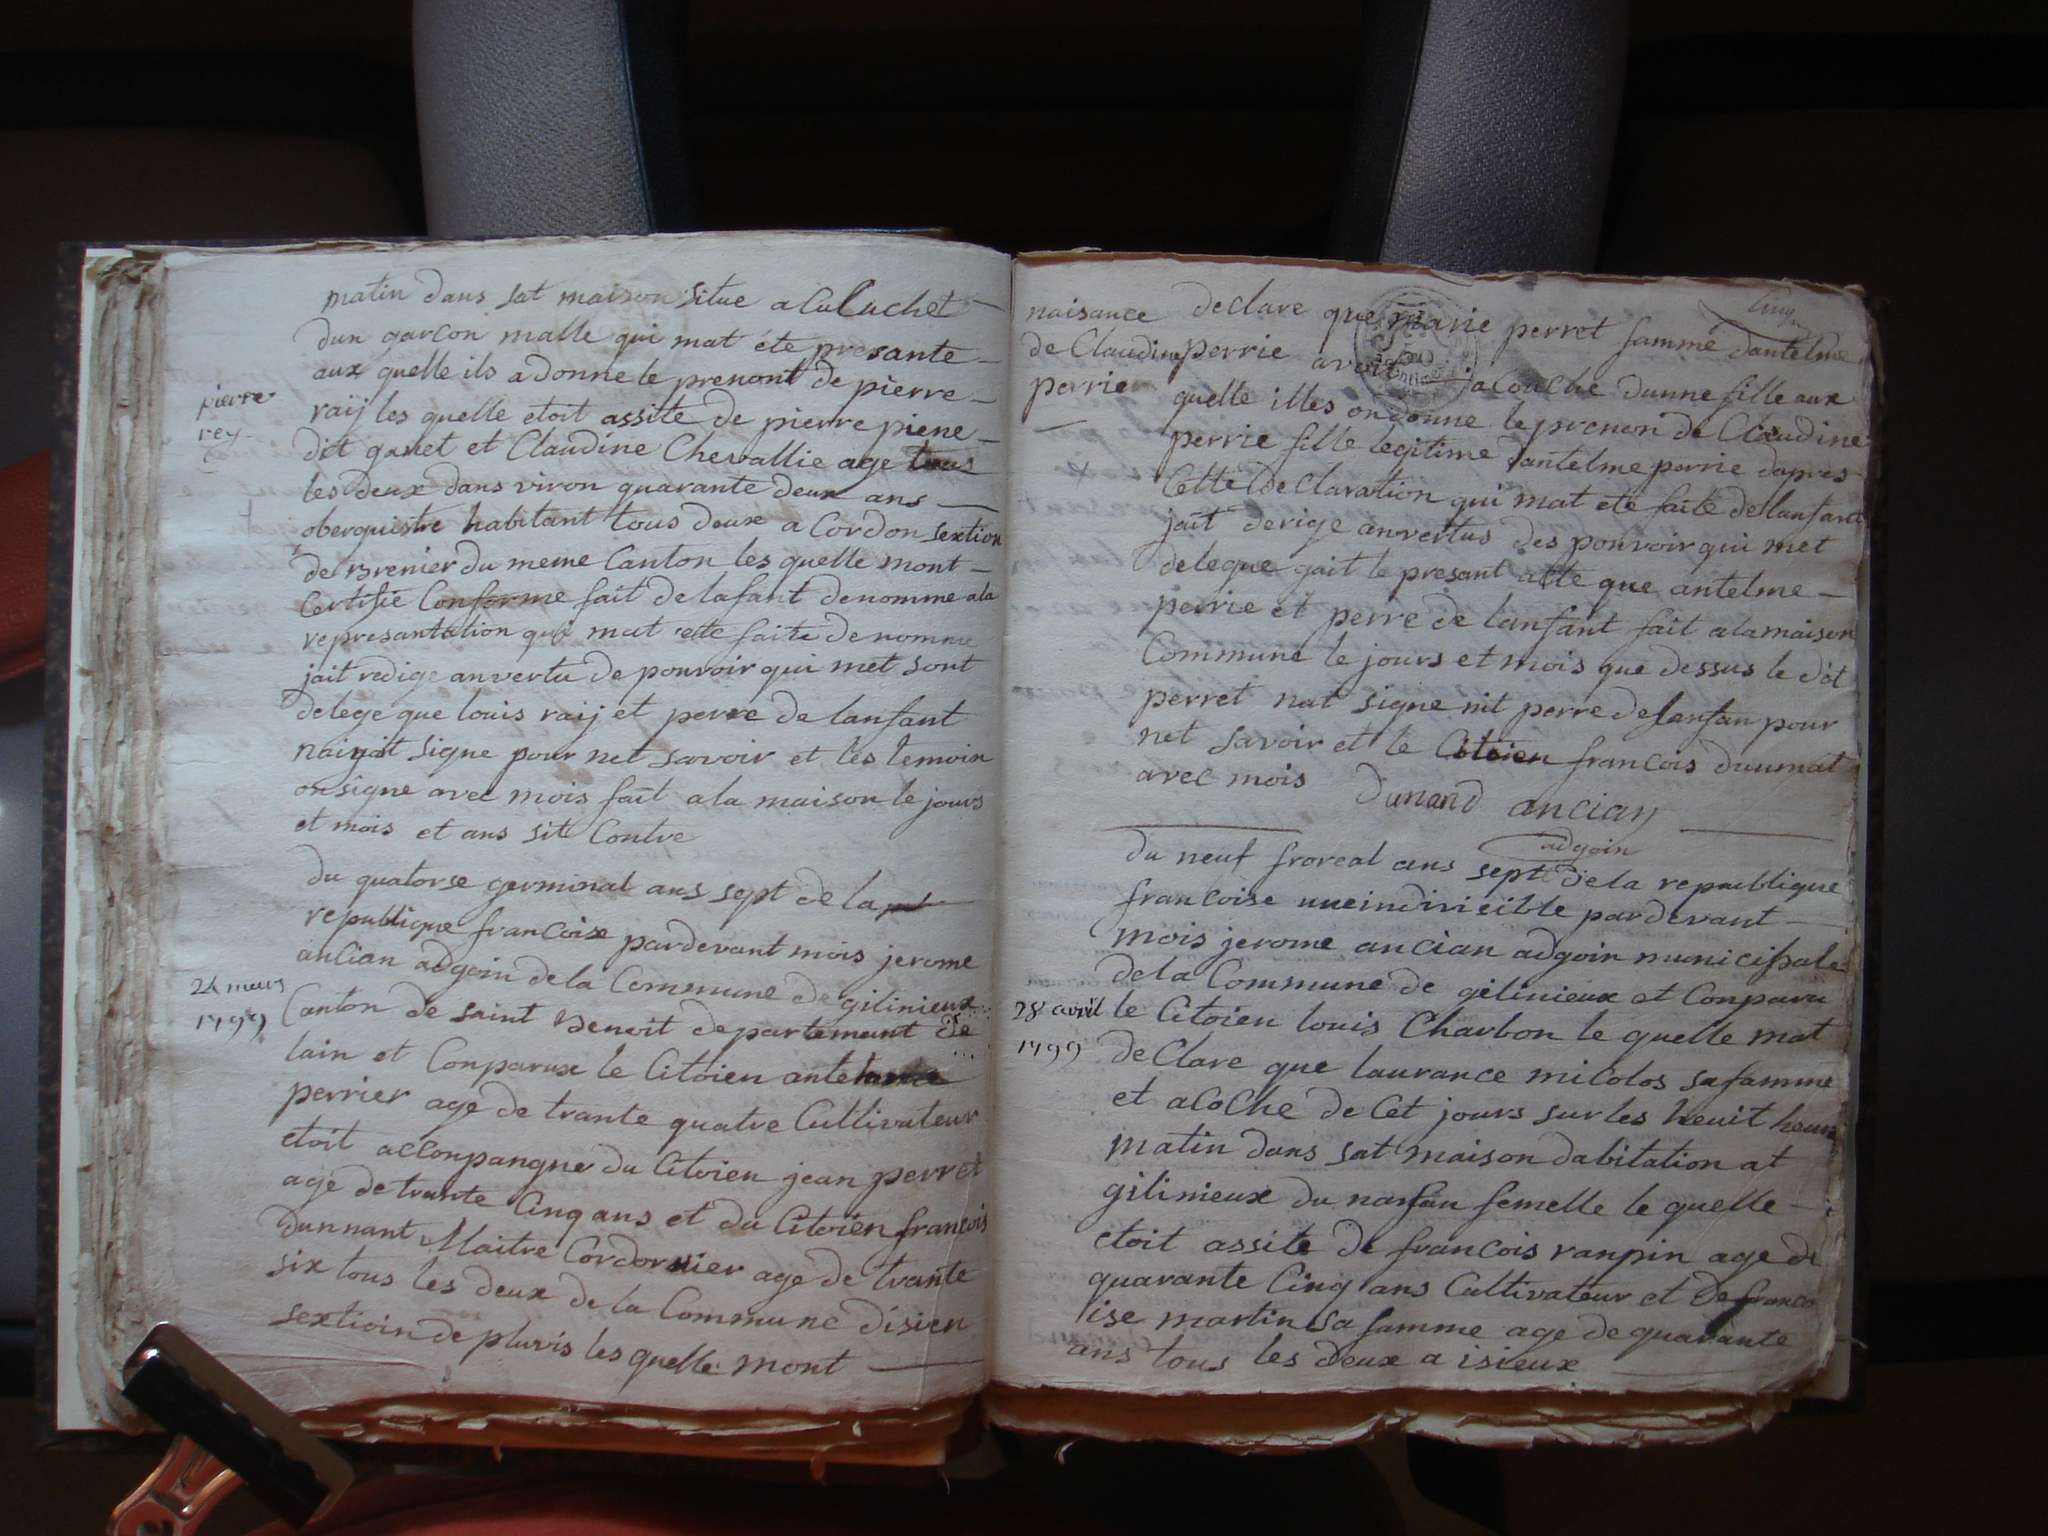 matin dans sat maison situe a la Luchet
dun garcon malle qui mat éte presante
aux quelle ils a donne le prenont de pierre
pierre
rey
raij les quelle etoit assite de pierre piene
dit ganet et Claudine Chevallie age tous
les deux dans viron quarante deux ans
oberguistre habitant tous deux a Cordon sextion
de Brenier du meme Canton les quelle mont
Certifie Conforme fait de lafant denomme ala
representation qui mat ete faite de nomme
jait redige anvertu de pouvoir qui met sont
delege que louis raij et perre de lanfant
signe pour net savoir et les temoin
on signe avec mois fait ala maison le jours
et mois et ans sit Contre
du quatorse germinal ans sept de la
republique francoise pardevant mois jerome
ancian adgoin de la Commune de gilinieux
24 mars
1799
Canton de saint Benoit departemant de
lain et Conparux le Citoien
perrier age de trante quatre Cultivateur
etoit acconpangne du Citoien jean perret
age de trante Cinq ans et du Citoien francois
dunnant Maitre Cordonnier age de trante
six tous les deux de la Commune disien
sextioin de pluvis les quelle mont
Cinq
naisance
de Claudine
perrier
declare que marie perret famme dantelme
perrie avoit acouche dunne fille aux
quelle illes on donne le prenon de Claudine
perrie fille legitime dantelme perrie dapres
Cette declaration qui mat ete faite de lanfant
jait derige anvertus des pouvoir qui met
deleque gait le presant atte que antelme
perrie et perre de lanfant fait alamaison
Commune le jours et mois que dessus le dit
perret nat signe nit perre de lanfan pour
net savoir et le Citoien francois dunnat
avec mois dunand ancian
adgoin
du neuf froreal ans sept de la republique
francoise une indivicible pardevant
mois jerome ancian adgoin municipale
de la Commune de gelinieux et Conparu
28 avril
1799
le Citoien louis Charbon le quelle mat
declare que laurance milolos sa famme
et acolche de Cet jours sur les heuit heure
matin dans sat maison dabitation at
gilinieux du nanfan femelle le quelle
etoit assite de francois ranpin age de
quarante Cinq ans Cultivateur et de franco
ise martin sa famme age de quarante
ans tous les deux a isieux